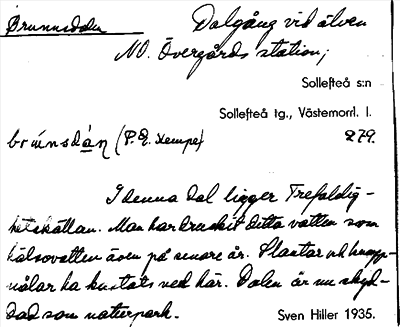 Brunnsdalen
Dalgång vid älven
NO. Övergårds station;
Sollefteå s:n
Sollefteå tg., Västernorrl. l.
brúnsdán (P. Q. Kempe) 279.
I denna dal ligger Trefaldig-
hetskällan. Man har druckit detta vatten som
hälsovatten även på senare år. Slantar och knapp-
nålar ha kastats ned här. Dalen är nu skyd-
dad som naturpark.
Sven Hiller 1935.